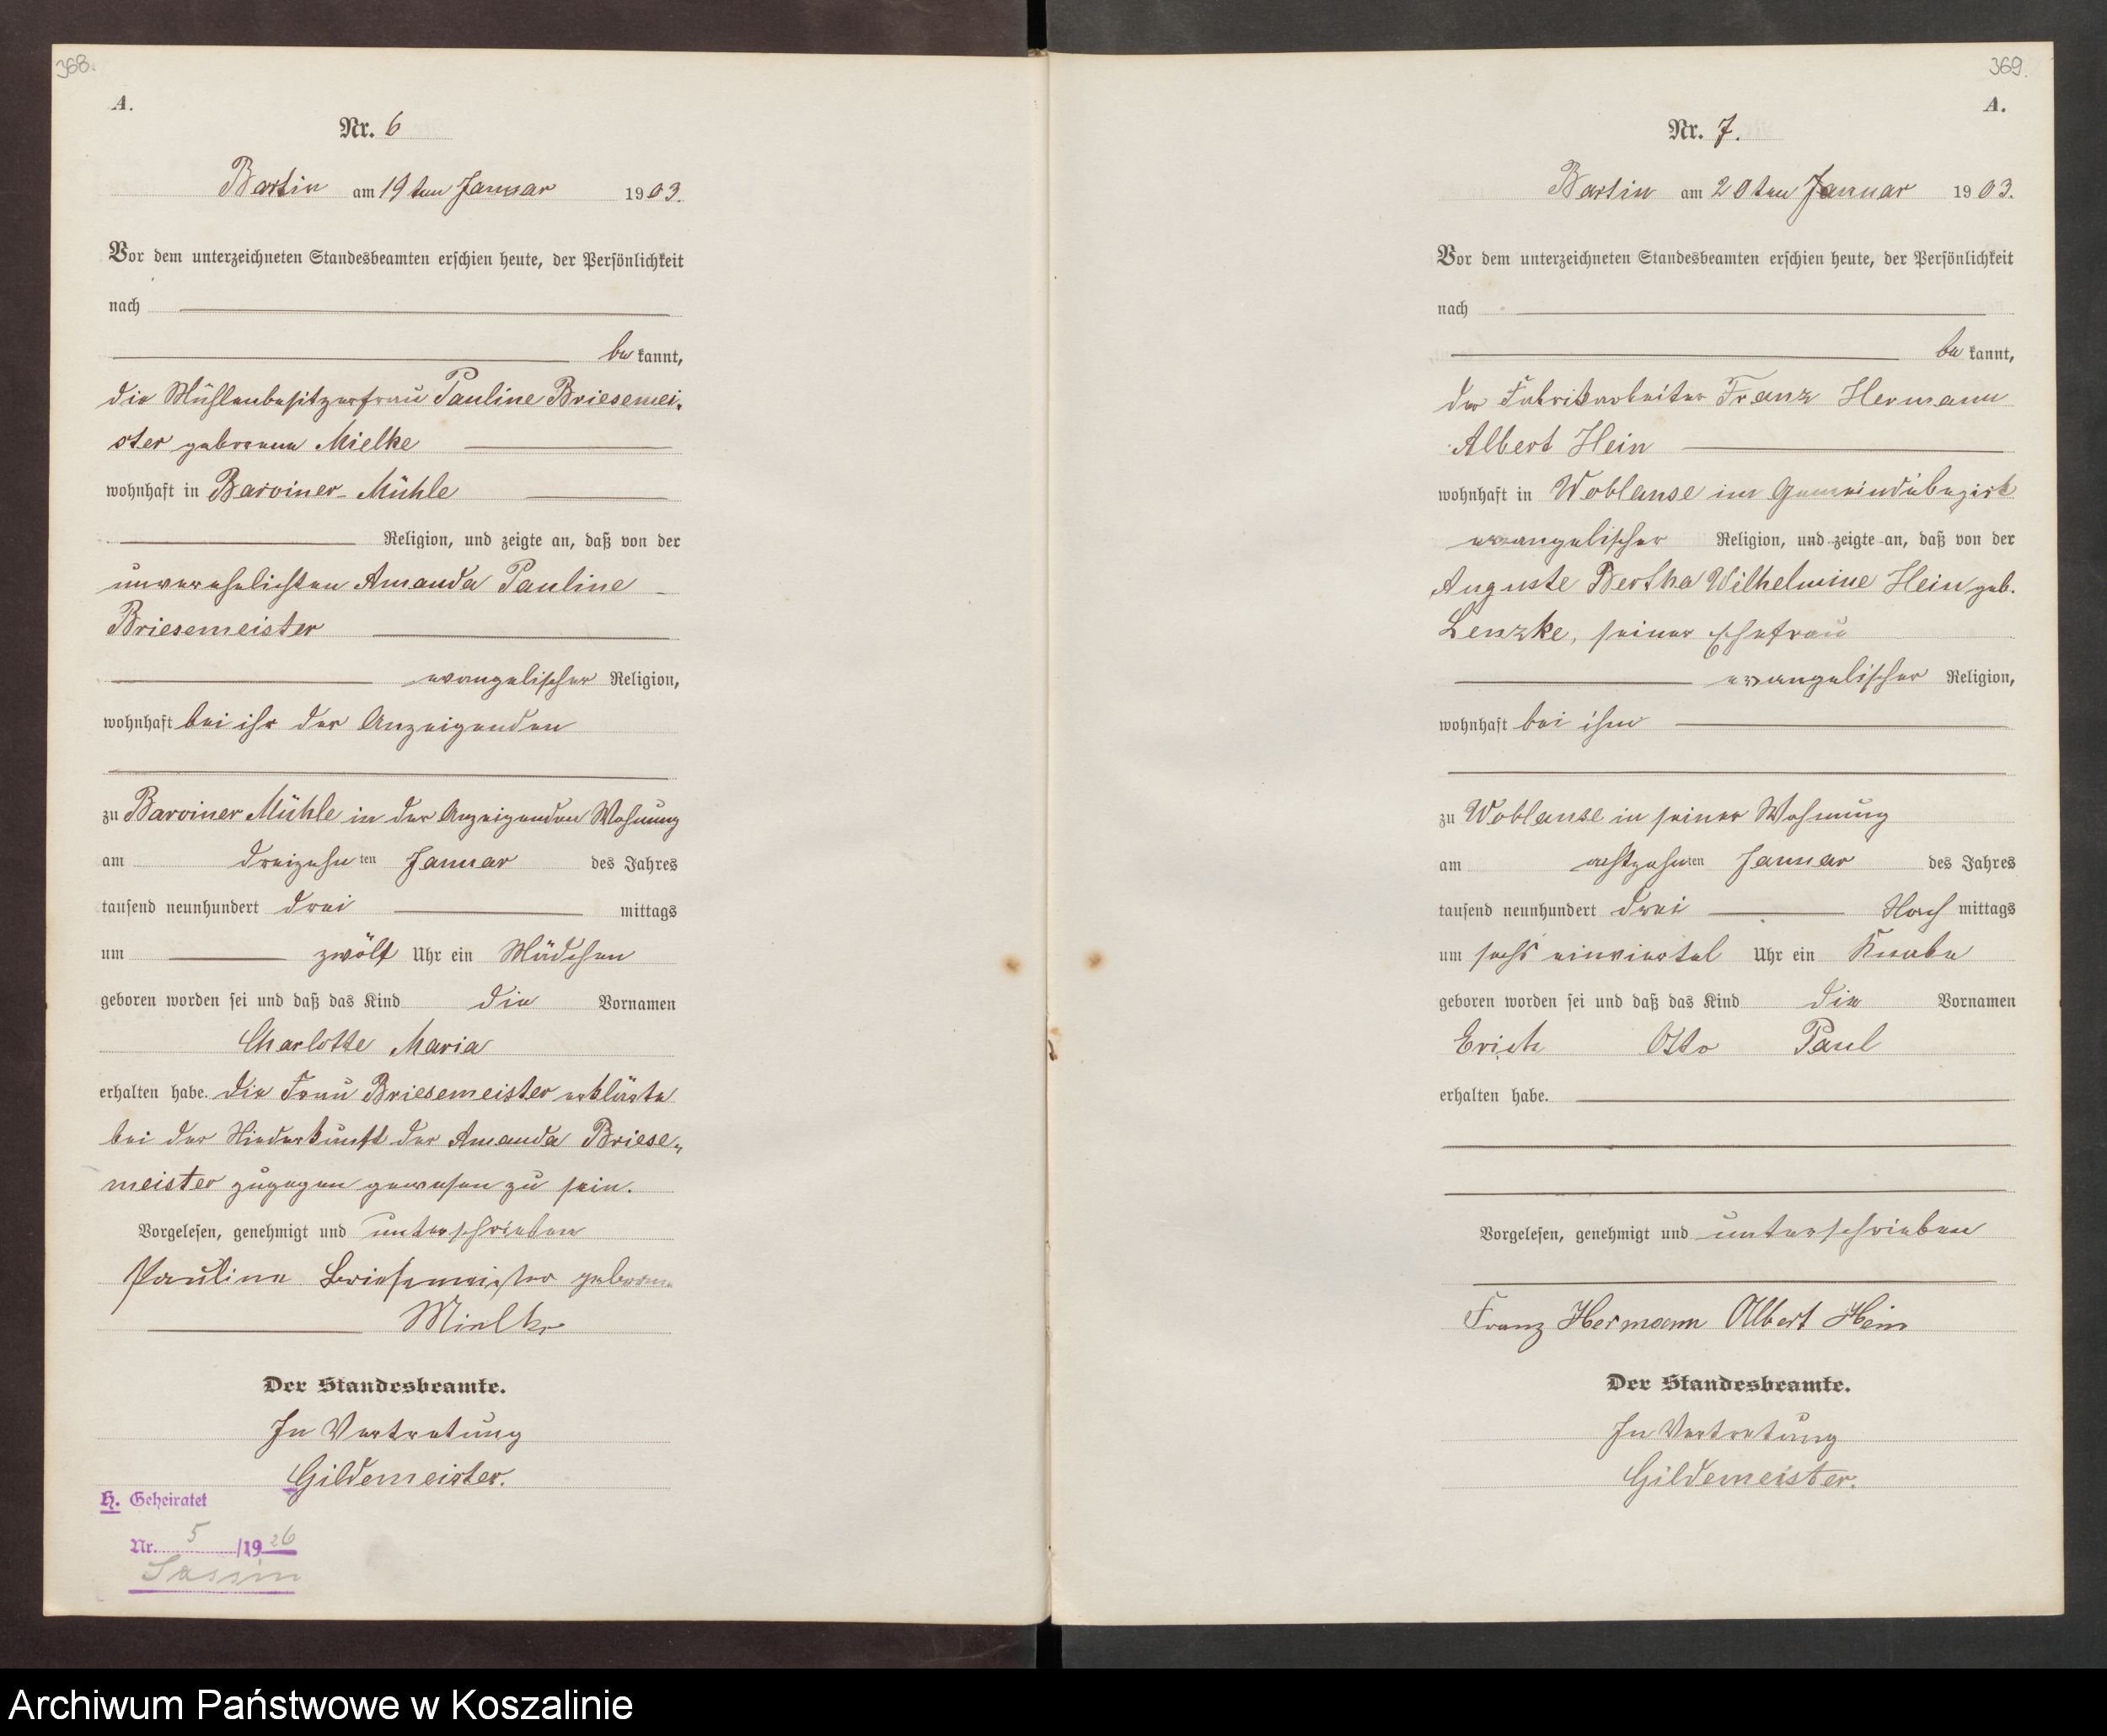 368.
A.
Nr. 6
Bartin am 19ten Januar 1903.
Vor dem unterzeichneten Standesbeamten erschien heute, der Persönlichkeit
nach
be kannt,
die Mühlenbesitzerfrau Pauline Briesemei-
ster geborene Mielke
wohnhaft in Barviner-Mühle
Religion, und zeigte an, daß von der
unverehelichten Amanda Pauline
Briesemeister
evangelischer Religion,
wohnhaft bei ihr der Anzeigenden
zu Barviner Mühle in der Anzeigenden Wohnung
am dreizehn ten Januar des Jahres
tausend neunhundert drei mittags
um zwölf Uhr ein Mädchen
geboren worden sei und daß das Kind die Vornamen
Charlotte Maria
erhalten habe. Die Frau Briesemeister erklärte
bei der Niederkunft der Amanda Briese-
meister zugegen gewesen zu sein.
Vorgelesen, genehmigt und unterschrieben
Pauline Briesemeister geborene
Mielke
Der Standesbeamte.
In Vertretung
Gildemeister.
H. Geheiratet
Nr. 5 /1926
Sassin
369.
A.
Nr. 7.
Bartin am 20ten Januar 1903.
Vor dem unterzeichneten Standesbeamten erschien heute, der Persönlichkeit
nach
be kannt,
der Fabrikarbeiter Franz Hermann
Albert Hein
wohnhaft in Woblanse im Gemeindebezirk
evangelischer Religion, und zeigte an, daß von der
Auguste Bertha Wilhelmine Hein geb.
Lenzke, seiner Ehefrau
evangelischer Religion,
wohnhaft bei ihm
zu Woblanse in seiner Wohnung
am achtzehn ten Januar des Jahres
tausend neunhundert drei Nach mittags
um sechs einviertel Uhr ein Knabe
geboren worden sei und daß das Kind die Vornamen
Erich Otto Paul
erhalten habe.
Vorgelesen, genehmigt und unterschrieben
Franz Hermann Albert Hein
Der Standesbeamte.
In Vertretung
Gildemeister.
Archiwum Państwowe w Koszalinie